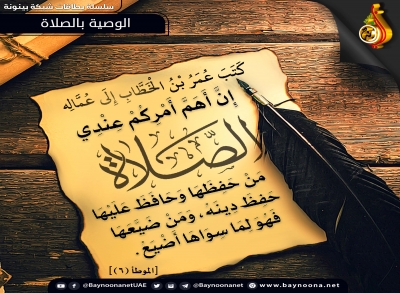 سلسلة بطاقات شبكة بينونة
الوصية بالصلاة
كَتَبَ عُمَرُ بْنُ الْخَطَّابِ إِلَى عُمَّالِهِ
إِنَّ أَهَمَّ أَمْرِكُمْ عِنْدِي
الصَّلَاةُ
مَنْ حَفِظَهَا وَحَافَظَ عَلَيْهَا
حَفِظَ دِينَهُ، وَمَنْ ضَيَّعَهَا
فَهُوَ لِمَا سِوَاهَا أَضْيَعُ.
[الموطأ (٦)]
@BaynoonanetUAE
@Baynoonanet
www.baynoona.net